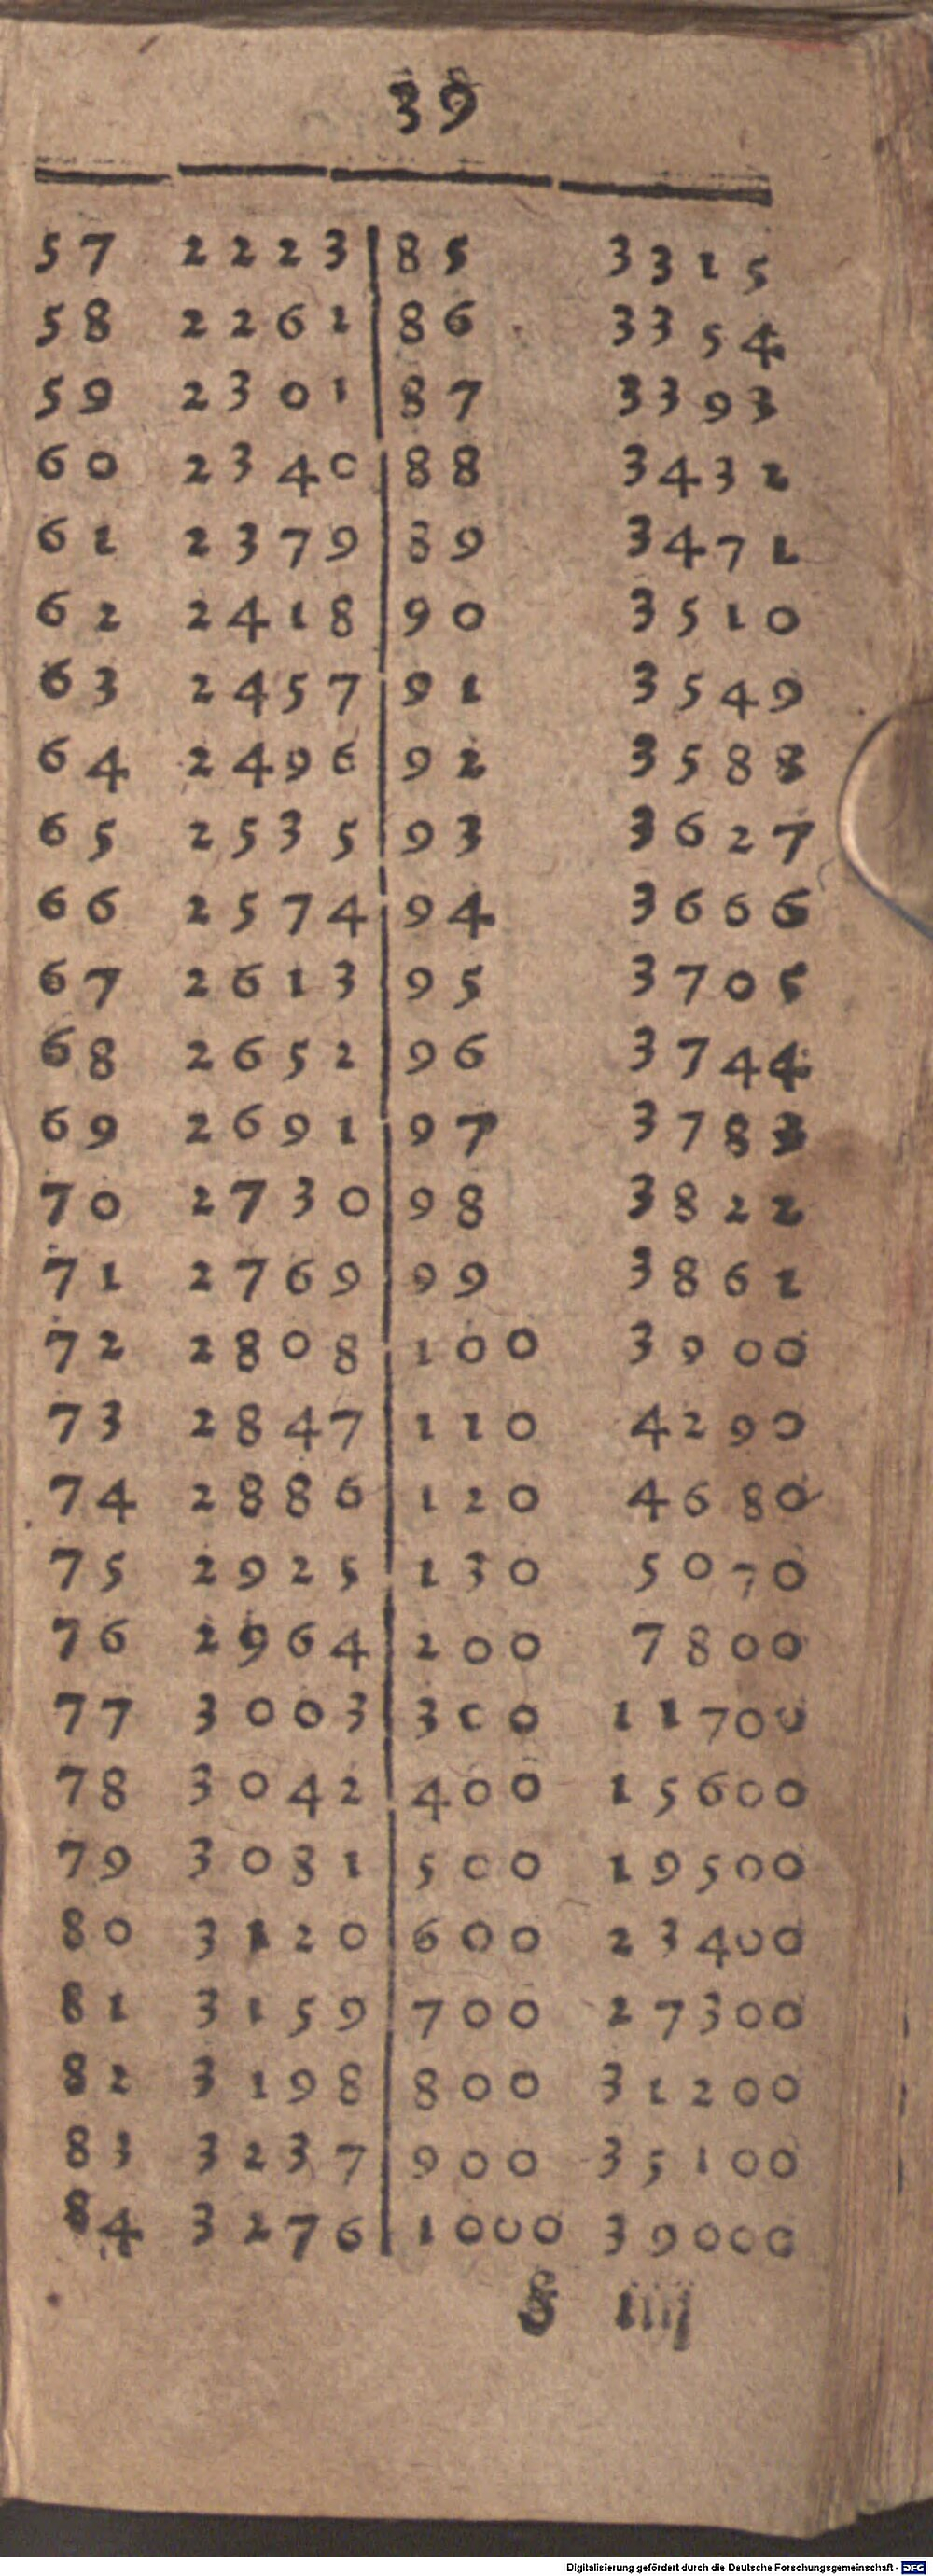 39
57 2223 85 3315
58 2262 86 3354
59 2301 87 3393
60 2340 88 3432
61 2379 89 3471
62 2418 90 3510
63 2457 91 3549
64 2496 92 3588
65 2535 93 3627
66 2574 94 3666
67 2613 95 3705
68 2652 96 3744
69 2691 97 3783
70 2730 98 3822
71 2769 99 3861
72 2808 100 3900
73 2847 110 4290
74 2886 120 4680
75 2925 130 5070
76 2964 200 7800
77 3003 300 11700
78 3042 400 15600
79 3081 500 19500
80 3120 600 23400
81 3159 700 27300
82 3198 800 31200
83 3237 900 35100
84 3276 1000 39000
iiij
Digitalisierung gefördert durch die Deutsche Forschungsgemeinschaft - DFG